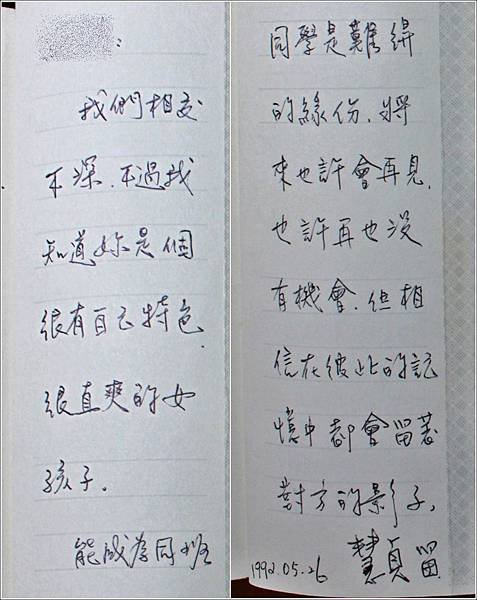 ：
我們相交
不深、不過我
知道妳是個
很有自己特色、
很直爽的女
孩子。
能成為同班
同學是難得
的緣份、將
來也許會再見、
也許再也沒
有機會、但相
信在彼此的記
憶中都會留著
對方的影子。
1992.05.26 慧貞留